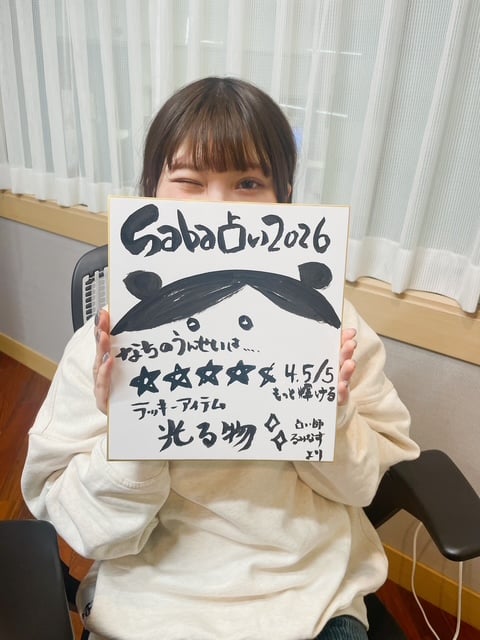 Saba占い2026
なちのうんせいは....
★★★★⯨ 4.5/5
もっと輝ける
ラッキーアイテム
光る物
占い師
るみなす
より